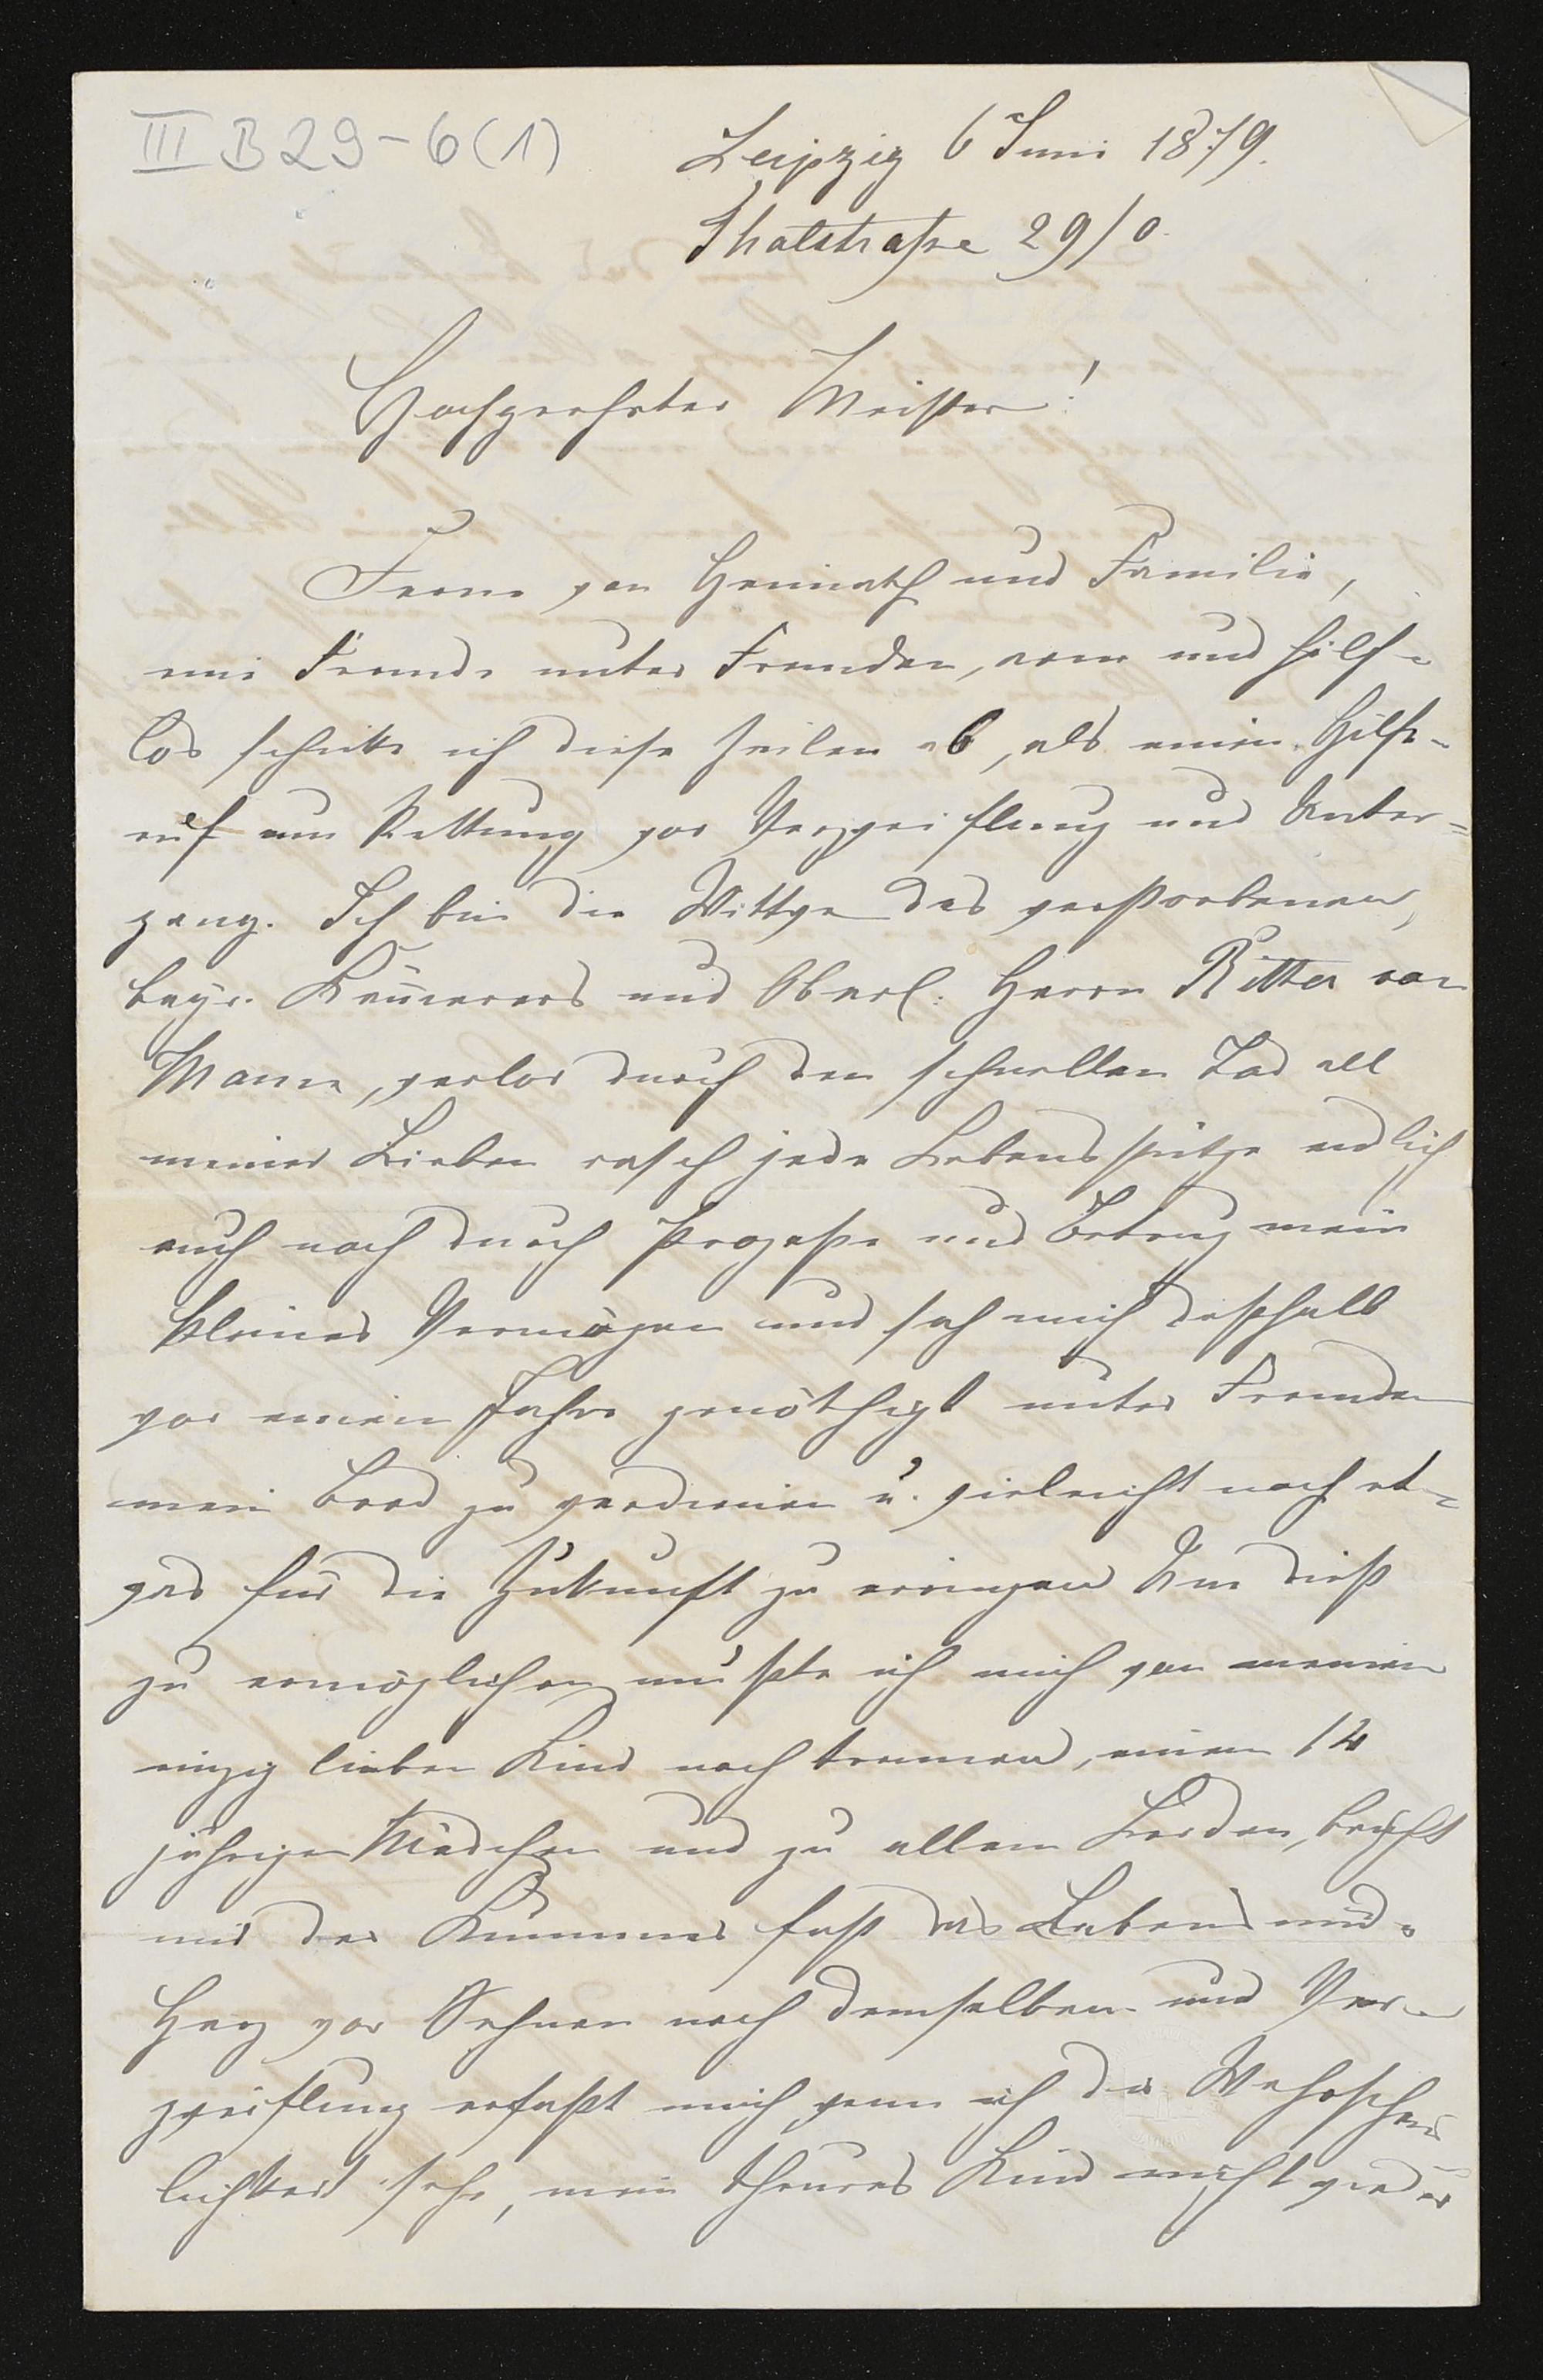 III B 29-6(1)
Leipzig 6 Juni 1879.
Thalstraße 29/0.
Hochgeehrter Meister!
Ferne von Heimath und Familie,
eine Fremde unter Fremden, arm und hilf-
los schicke ich diese Zeilen ab, als einen Hilfe-
ruf um Rettung vor Verzweiflung und Unter=
gang. Ich bin die Wittwe des verstorbenen,
bayr. Kämerers und Oberl. Herrn Ritter von
Mann, verlor durch den schnellen Tod all
meiner Lieben rasch jede Lebensstütze endlich
auch noch durch Prozesse und Betrug mein
kleines Vermögen und sah mich deßhalb
vor einem Jahre genöthigt unter Fremden
mein Brod zu verdienen u. vieleicht noch et-
was für die Zukunft zu erringen Um dieß
zu ermöglichen mußte ich mich von meinem
einzig lieben Kind noch trennen, einem 14
jährigen Mädchen und zu allem Leiden, bricht
mir der Kummer fast das Lebens und
Herz vor Sehnen nach demselben und Ver-
zweiflung erfaßt mich wenn ich die Wahrschein
lichkeit sehe, mein theures Kind nicht wieder